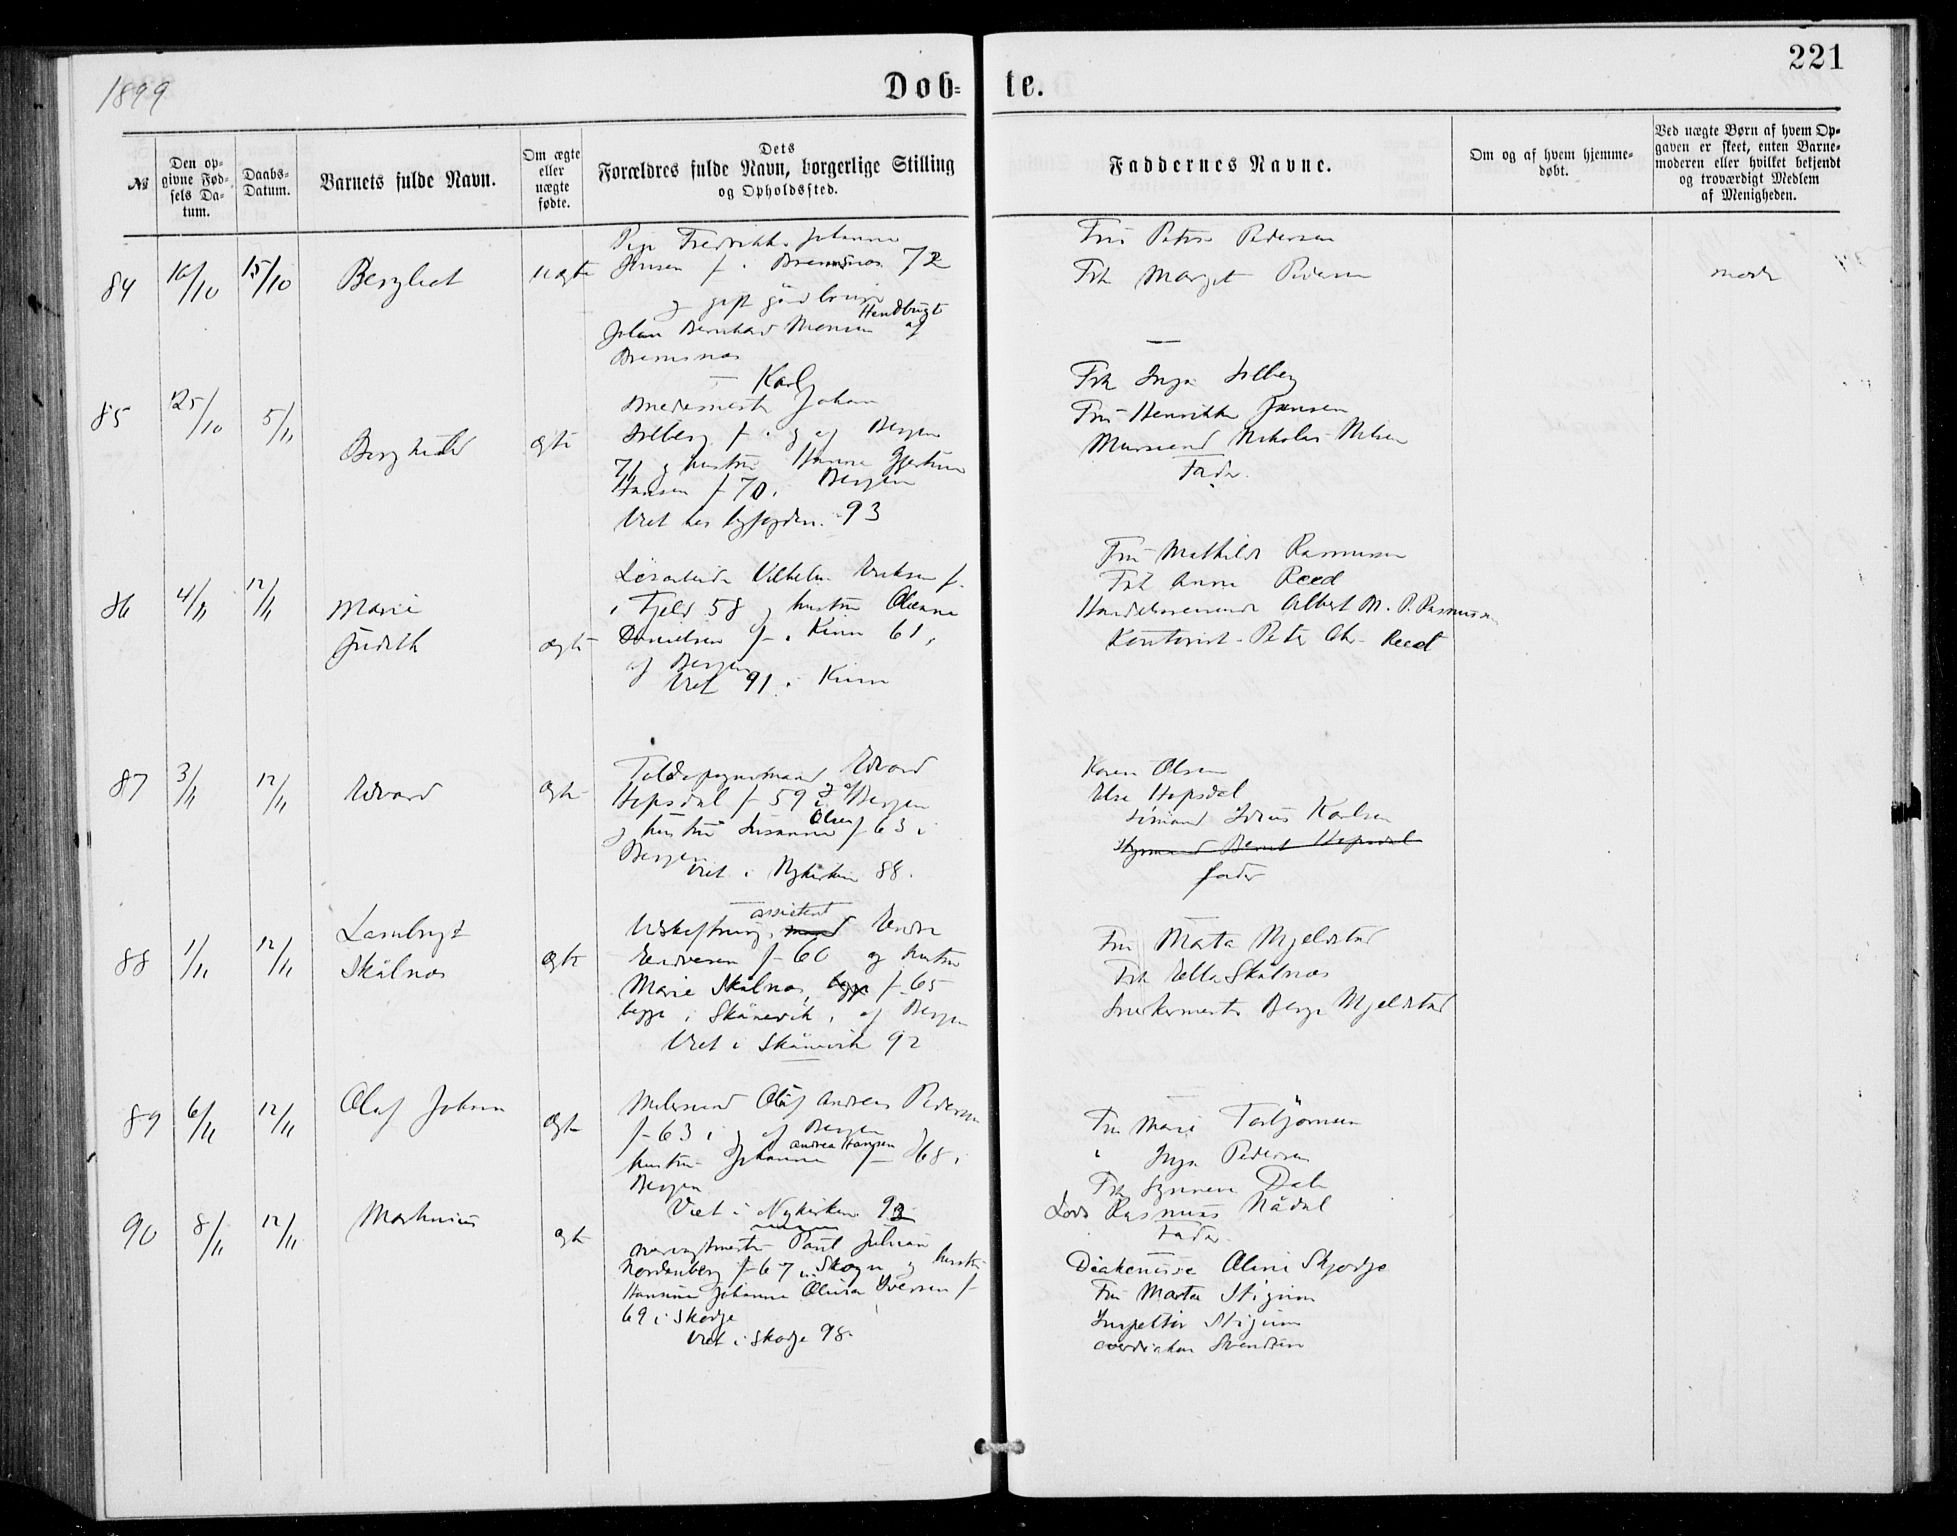 221
1899
Døb-
te.
№
Den op-
givne Fød-
sels Da-
tum.
Daabs-
Datum.
Barnets fulde Navn.
Om ægte
eller
uægte
fødte.
Dets
Forældres fulde Navn, borgerlige Stilling
og Opholdssted.
Faddernes Navne.
Om og af hvem hjemme-
døbt.
Ved uægte Børn af hvem Op-
gaven er skeet, enten Barne-
moderen eller hvilket bekjendt
og troværdigt Medlem
af Menigheden.
84
10/10
15/10
Bergliot
uægte
Pige Fredrikke Johanne
f. i Bremsnæs 72
og gift
Johan Bernhard Monsen af
Bremsnæs
Fru Petra Pedersen
Frk Margit Pedersen
85
25/10
5/11
Berghild
ægte
Karl
Johan
Solberg f. i og af Bergen
71 og hustru Hanna
Hansen f 70 i Bergen
Viet hos byfogden 93
Frk Inga Solberg
Fru Henrikke Jansen
Nikolai Nilsen
Fader.
86
4/11
12/11
Marie
Judith
ægte
Løsarbeider Vilhelm Eriksen f.
i Fjeld 58 og hustru Oleanna
Danielsen f. i Kinn 61,
af Bergen
Viet 91 i Kinn
Fru Mathilde Rasmussen
Frk Anna Reed
Albert M. P. Rasmussen
Kontorist Peter Chr. Reed
87
3/11
12/11
Edvard
ægte
Edvard
Hopsdal f 59 i og af Bergen
og hustru Susanna Olsen f 63 i
Bergen
Viet i Nykirken 88.
Karen Olsen
Else Hopsdal
Sømand Karlsen
Bernt Hopsdal
fader
88
1/11
12/11
Lambrigt
Skålnæs
ægte
Udskiftnings assistent Endre
Endresen f 60 og hustru
Marie Skålnæs, begge f 65
begge i Skånevik, af Bergen
Viet i Skånevik 92
Fru Marta Mjeldstad
Frk Ella Skålnæs
Snekkermester Berge Mjeldstad
89
6/11
12/11
Olaf Johan
ægte
Olaf Andreas Pedersen
f 63 i og af Bergen og
hustru Johanna Andrea Hansen f 68 i
Bergen
Viet i Nykirken 92
Fru Marie Torbjørnsen
" Inga Pedersen
Frk Synneve Dale
Lods Rasmus Nådal
Fader.
90
8/11
12/11
Martinius
ægte
Paul Julian
Nordenberg f 67 i Skogn og hustru
Hansine Johanne Olivia Iversen f
69 i Skodje
Viet i Skodje 98
Diakonisse Oline Skjodje
Fru Marta Stigum
Inspektør Stigum
Svendsen